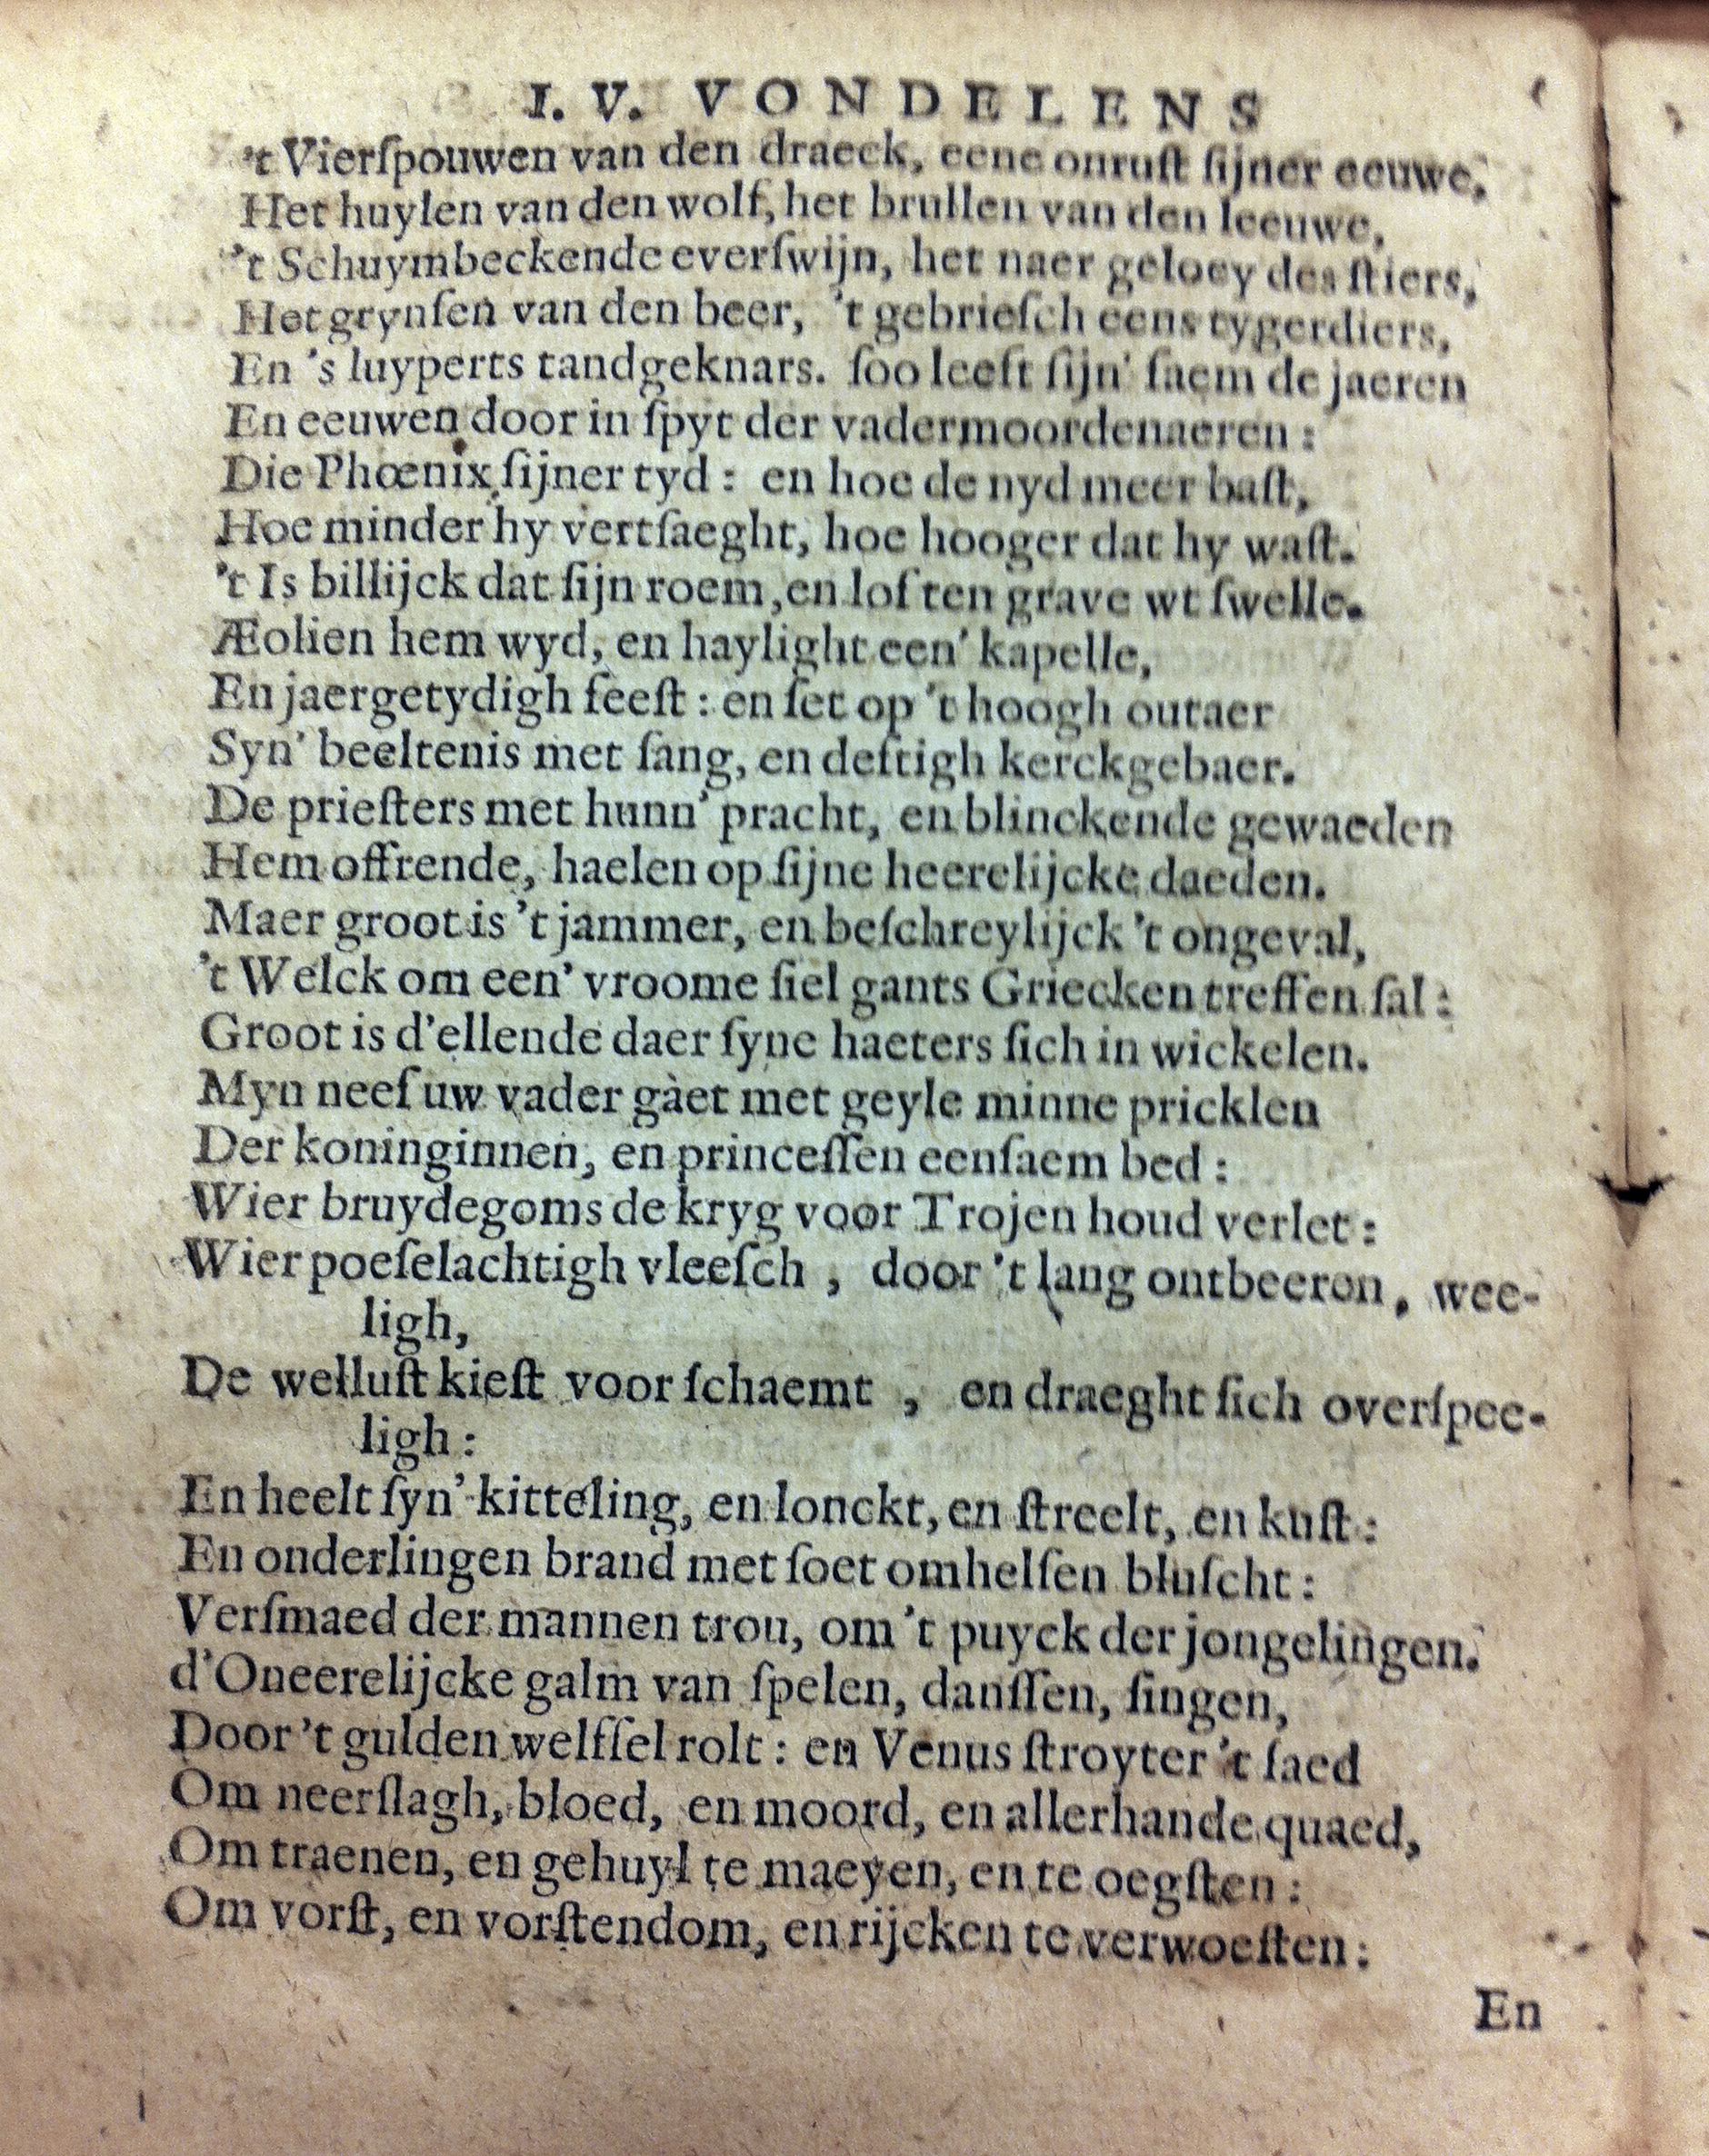 I. V. VONDELENS
't Vierſpouwen van den draeck, eene onruſt ſijner eeuwe,
Het huylen van den wolf, het brullen van den leeuwe,
't Schuymbeckende everſwijn, het naer geloey des ſtiers,
Het grynſen van den beer, 't gebrieſch eens tygerdiers,
En 's luyperts tandgeknars. ſoo leeft ſijn' faem de jaeren
En eeuwen door in ſpyt der vadermoordenaeren:
Die Phœnix ſijner tyd: en hoe de nyd meer baſt,
Hoe minder hy vertſaeght, hoe hooger dat hy waſt.
't Is billijck dat ſijn roem, en lof ten grave wt ſwelle.
Æolien hem wyd, en haylight een' kapelle,
En jaergetydigh feeſt: en ſet op 't hoogh outaer
Syn' beeltenis met ſang, en deftigh kerckgebaer.
De prieſters met hunn' pracht, en blinckende gewaeden
Hem offrende, haelen op ſijne heerelijcke daeden.
Maer groot is 't jammer, en beſchreylijck 't ongeval,
't Welck om een' vroome ſiel gants Griecken treffen ſal:
Groot is d'ellende daer ſyne haeters ſich in wickelen.
Myn neef uw vader gàet met geyle minne pricklen
Der koninginnen, en princeſſen eenſaem bed:
Wier bruydegoms de kryg voor Trojen houd verlet:
Wier poeſelachtigh vleeſch, door 't lang ontbeeren, wee-
ligh,
De welluſt kieſt voor ſchaemt, en draeght ſich overſpee-
ligh:
En heelt ſyn' kitteling, en lonckt, en ſtreelt, en kuſt:
En onderlingen brand met ſoet omhelſen bluſcht:
Verſmaed der mannen trou, om 't puyck der jongelingen.
d'Oneerelijcke galm van ſpelen, danſſen, ſingen,
Door 't gulden welfſel rolt: en Venus ſtroyter 't ſaed
Om neerſlagh, bloed, en moord, en allerhande quaed,
Om traenen, en gehuyl te maeyen, en te oegſten:
Om vorſt, en vorſtendom, en rijcken te verwoeſten:
En